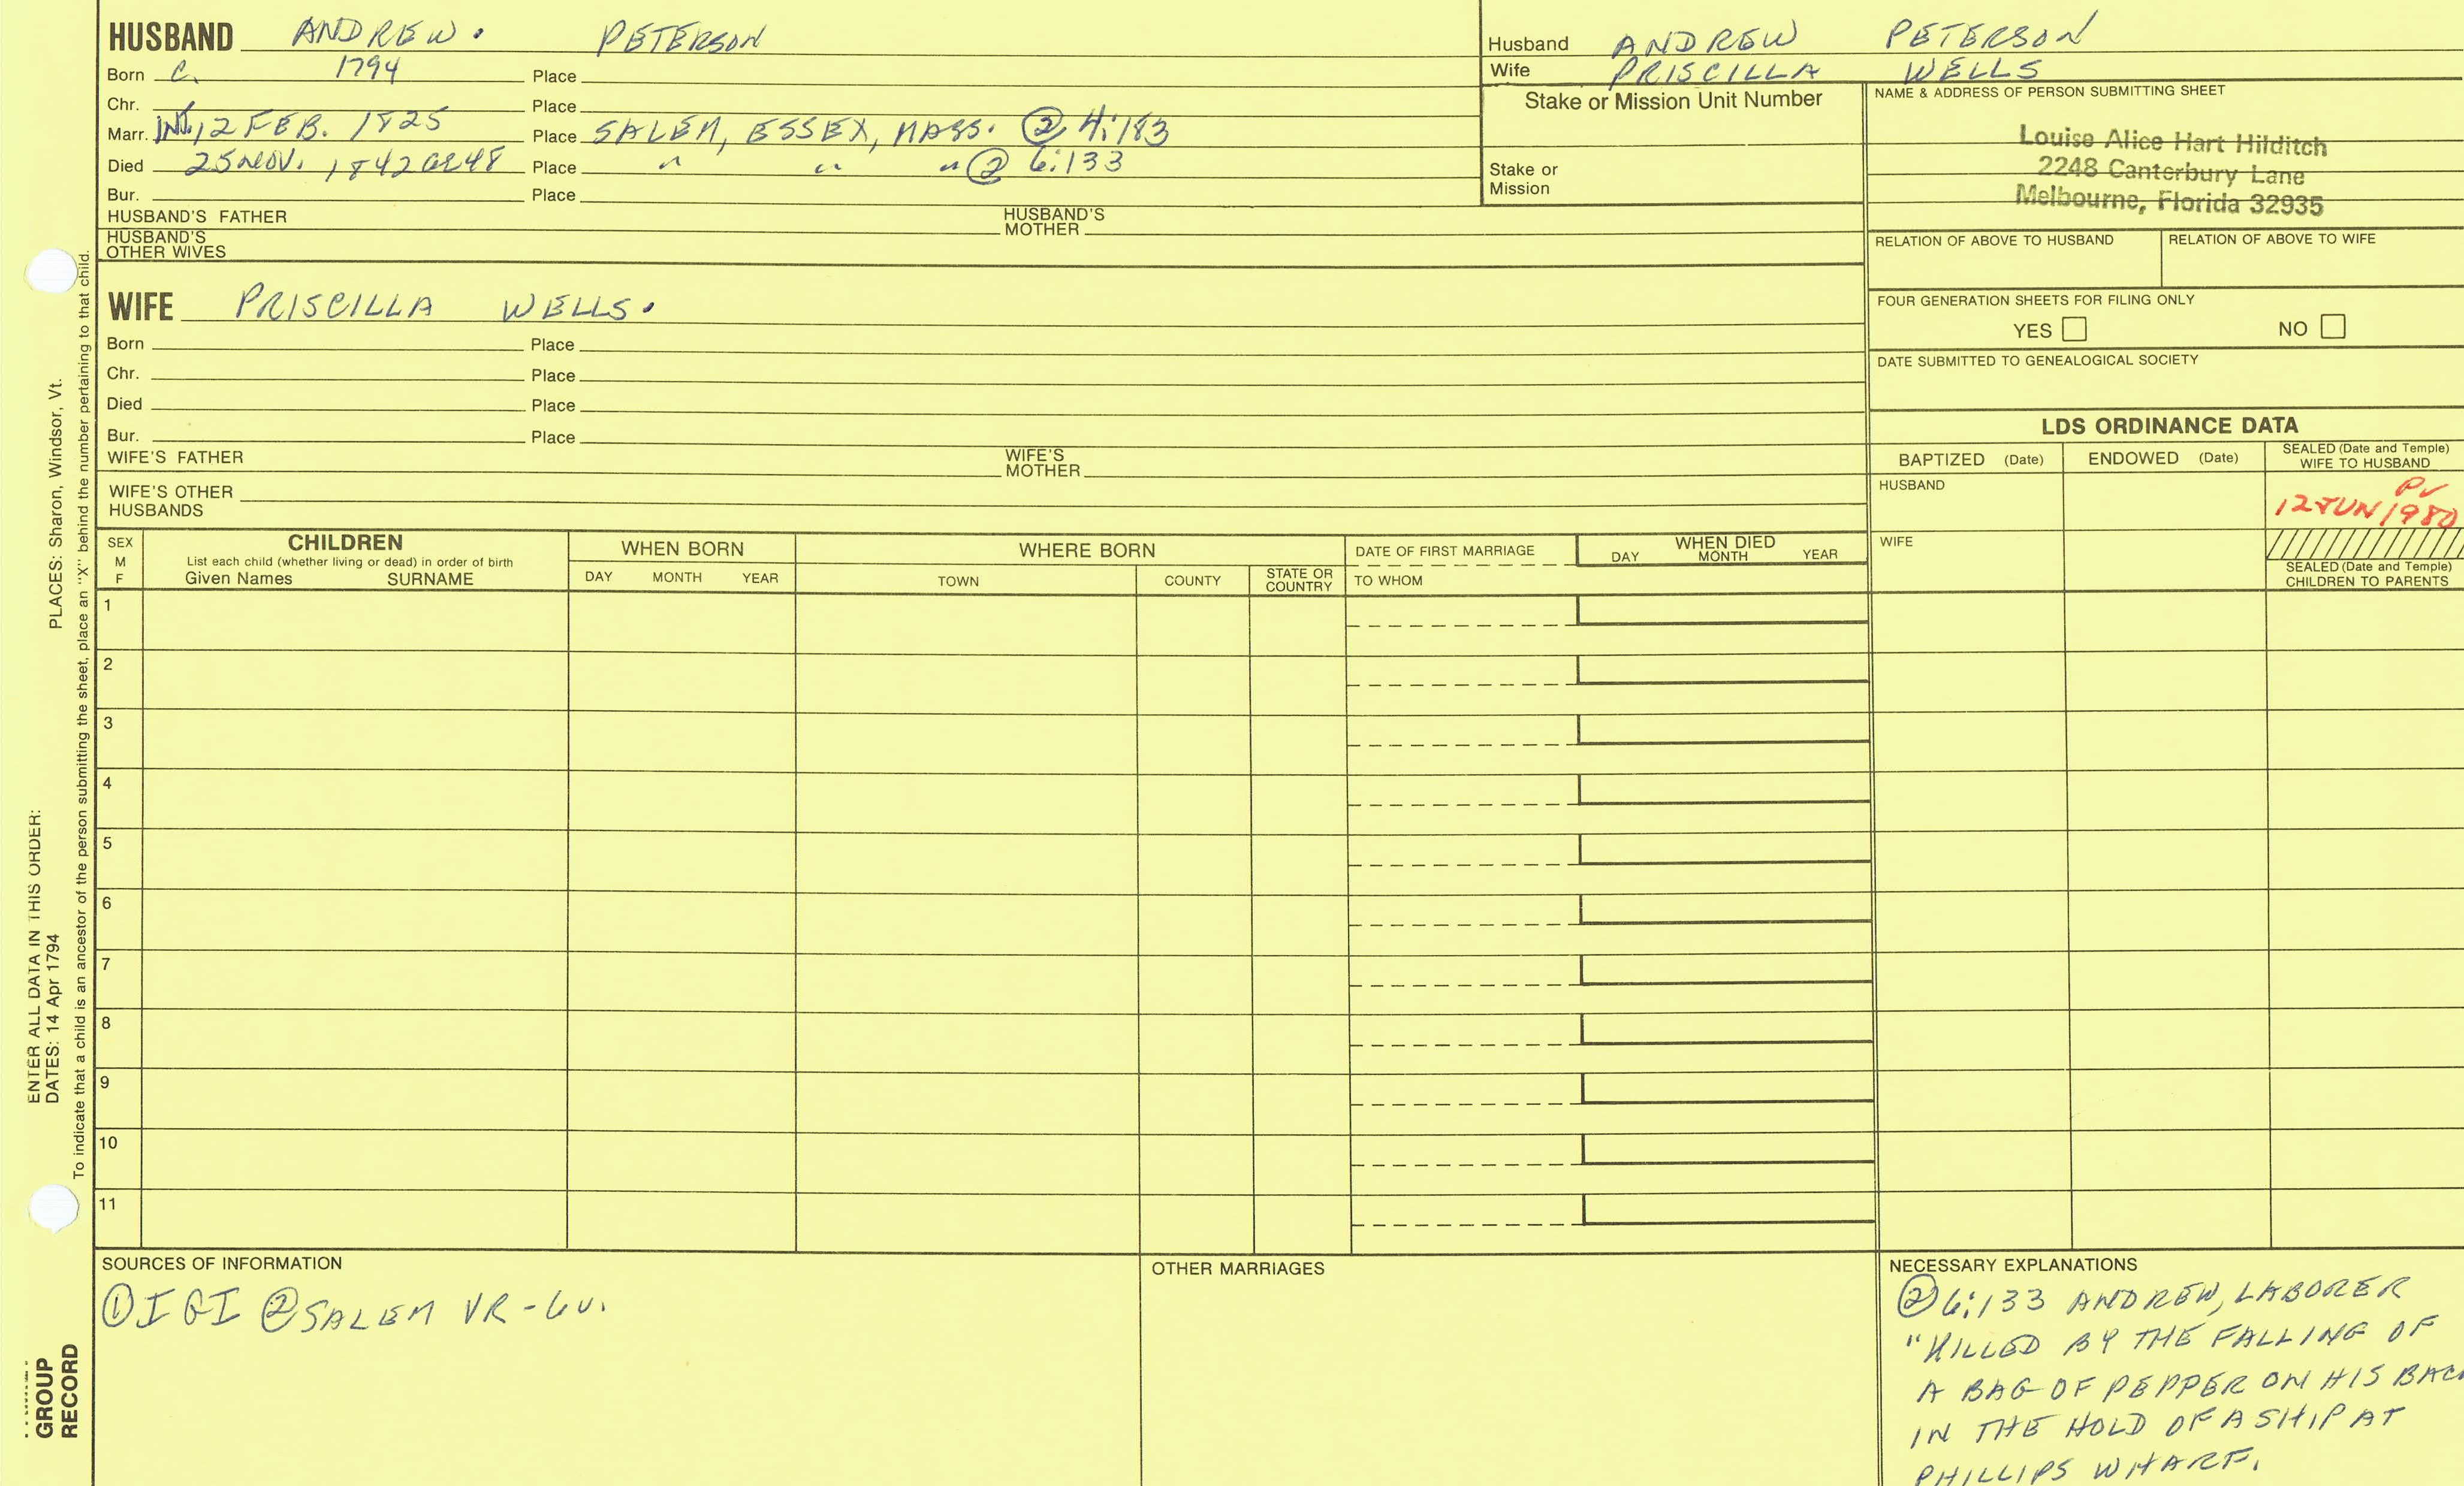 HUSBAND ANDREW. PETERSON
Born C. 1794 Place
Chr. Place
Marr. INT. 12 FEB. 1825 Place SALEM, ESSEX, MASS. ② 4:183
Died 25 NOV. 1842 Æ48 Place " " " ② 6:133
Bur. Place
HUSBAND'S FATHER HUSBAND'S MOTHER
HUSBAND'S OTHER WIVES
Husband ANDREW PETERSON
Wife PRISCILLA WELLS
Stake or Mission Unit Number
Stake or
Mission
NAME & ADDRESS OF PERSON SUBMITTING SHEET
Louise Alice Hart Hilditch
2248 Canterbury Lane
Melbourne, Florida 32935
RELATION OF ABOVE TO HUSBAND RELATION OF ABOVE TO WIFE
WIFE PRISCILLA WELLS.
Born Place
Chr. Place
Died Place
Bur. Place
WIFE'S FATHER WIFE'S MOTHER
WIFE'S OTHER
HUSBANDS
FOUR GENERATION SHEETS FOR FILING ONLY
YES NO
DATE SUBMITTED TO GENEALOGICAL SOCIETY
LDS ORDINANCE DATA
BAPTIZED (Date) ENDOWED (Date) SEALED (Date and Temple) WIFE TO HUSBAND
HUSBAND PV
12 JUN 1980
WIFE
SEALED (Date and Temple)
CHILDREN TO PARENTS
SEX
M
F
CHILDREN
List each child (whether living or dead) in order of birth
Given Names SURNAME
WHEN BORN
DAY MONTH YEAR
WHERE BORN
TOWN COUNTY STATE OR COUNTRY
DATE OF FIRST MARRIAGE
TO WHOM
WHEN DIED
DAY MONTH YEAR
1
2
3
4
5
6
7
8
9
10
11
SOURCES OF INFORMATION
① IGI ② SALEM VR - 6v.
OTHER MARRIAGES
NECESSARY EXPLANATIONS
② 6:133 ANDREW, LABORER
"KILLED BY THE FALLING OF
A BAG OF PEPPER ON HIS
IN THE HOLD OF A SHIP AT
PHILLIPS WHARF.
PLACES: Sharon, Windsor, Vt.
ENTER ALL DATA IN THIS ORDER:
DATES: 14 Apr 1794
To indicate that a child is an ancestor of the person submitting the sheet, place an "X" behind the number pertaining to that child.
GROUP
RECORD